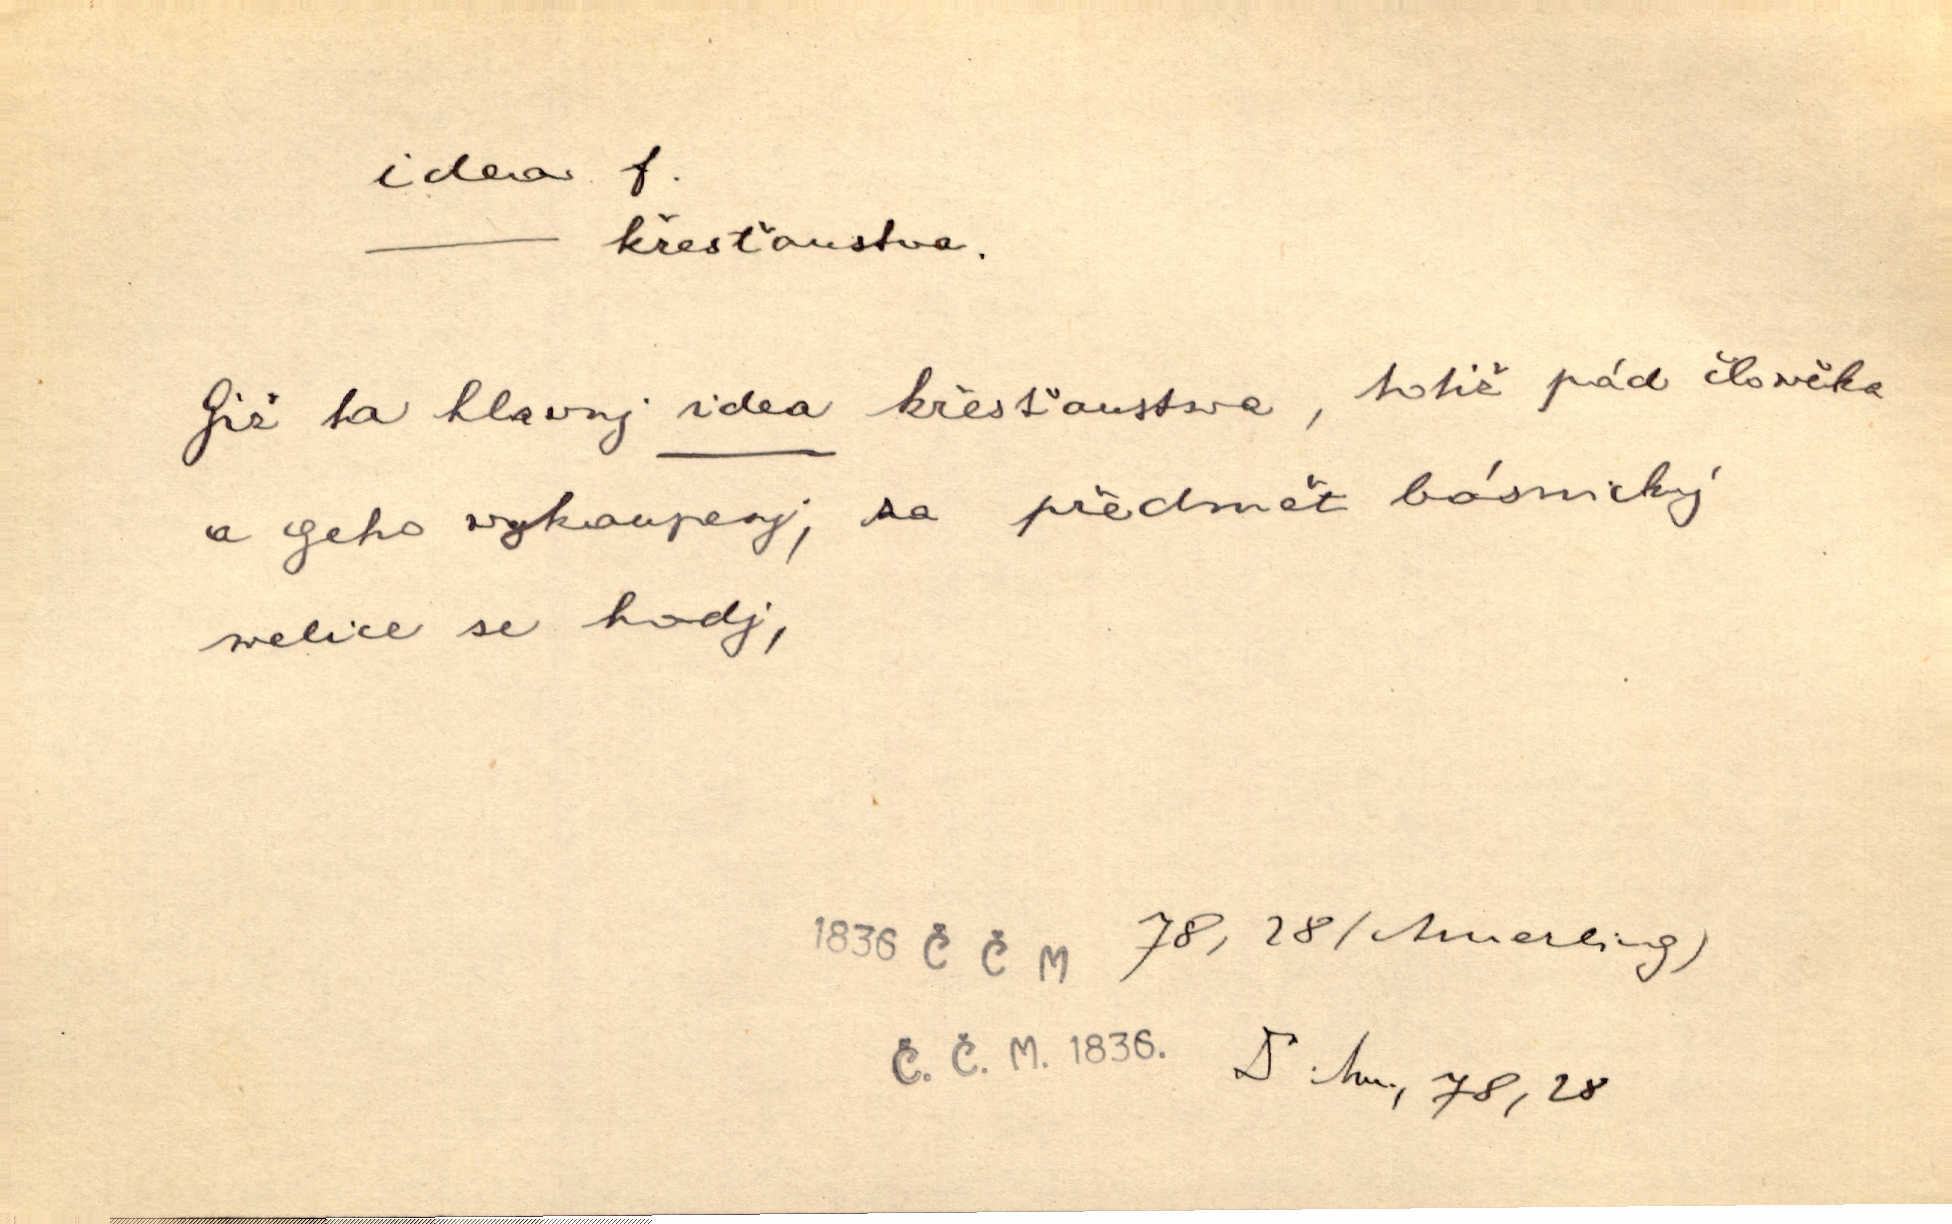 idea f.
křesťanstva.
Giž ta hlavnj idea křesťanstwa, totiž pád člowěka
a geho wykaupenj, za předmět básnický
welice se hodj,
1836 Č Č M 78, 28 (Amerling)
Č. Č. M. 1836. D Am., 78, 28